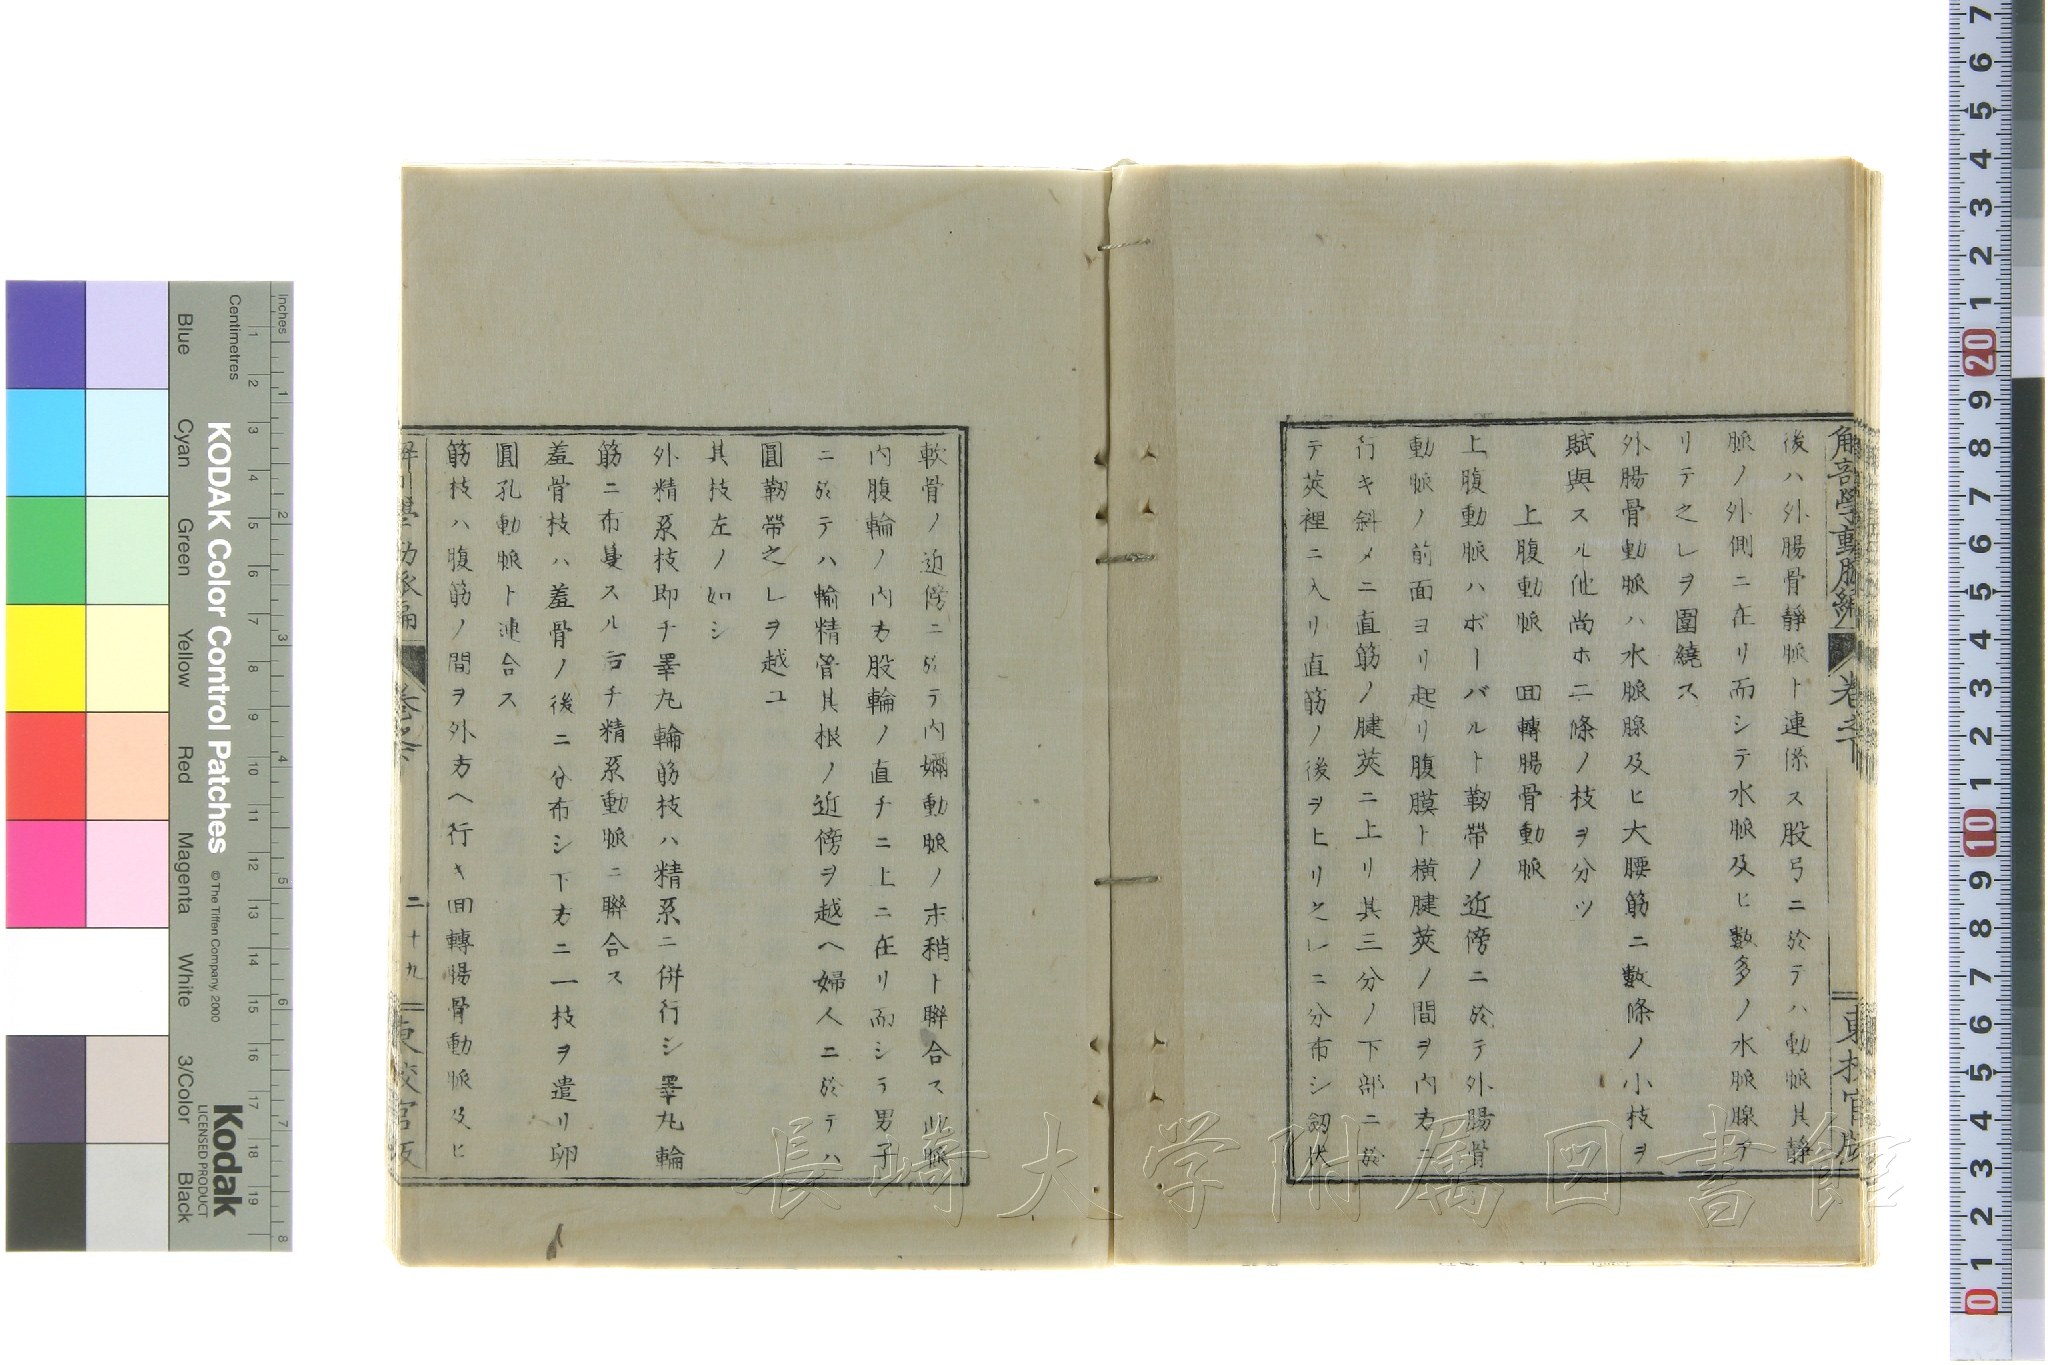 後ハ外腸骨靜脈ト連係ス股弓ニ於テハ動脈其靜
脈ノ外側ニ在リ而シテ水脈及ヒ數多ノ水脈腺テ
リテ之レヲ圍繞ス
外腸骨動脈ハ水脈腺及ヒ大腰筋ニ數條ノ小枝ヲ
賦與スル他尚ホ二條ノ枝ヲ分ツ
上腹動脈 回轉腸骨動脈
上腹動脈ハボーバルト靭帶ノ近傍ニ於テ外腸骨
動脈ノ前面ヨリ起リ腹膜ト橫腱莢ノ間ヲ內方ニ
行キ斜メニ直筋ノ腱莢ニ上リ其三分ノ下部ニ於
テ莢裡ニ入リ直筋ノ後ヲヒリ之レニ分布シ劔狀
軟骨ノ近傍ニ於テ內嬭動脈ノ末稍ト聯合ス此脈
內腹輪ノ內方股輪ノ直チニ上ニ在リ而シテ男子
ニ於テハ輸精管其根ノ近傍ヲ越ヘ婦人ニ於テハ
圓靭帶之レヲ越ユ
其枝左ノ如シ
外精系枝即チ睪丸輪筋枝ハ精系ニ併行シ睪丸輪
筋ニ布蔓スル而チ精系動脈ニ聯合ス
羞骨枝ハ羞骨ノ後ニ分布シ下方ニ一枝ヲ遣リ卵
圓孔動脈ト連合ス
筋枝ハ腹筋ノ間ヲ外方ヘ行キ回轉腸骨動脈及ヒ
解剖學動脈編
卷之下
東校官版
二十九
長崎大学附属図書館
KODAK Color Control Patches
© The Tiffen Company, 2000
Kodak
LICENSED PRODUCT
Inches
Centimetres
Blue
Cyan
Green
Yellow
Red
Magenta
White
3/Color
Black